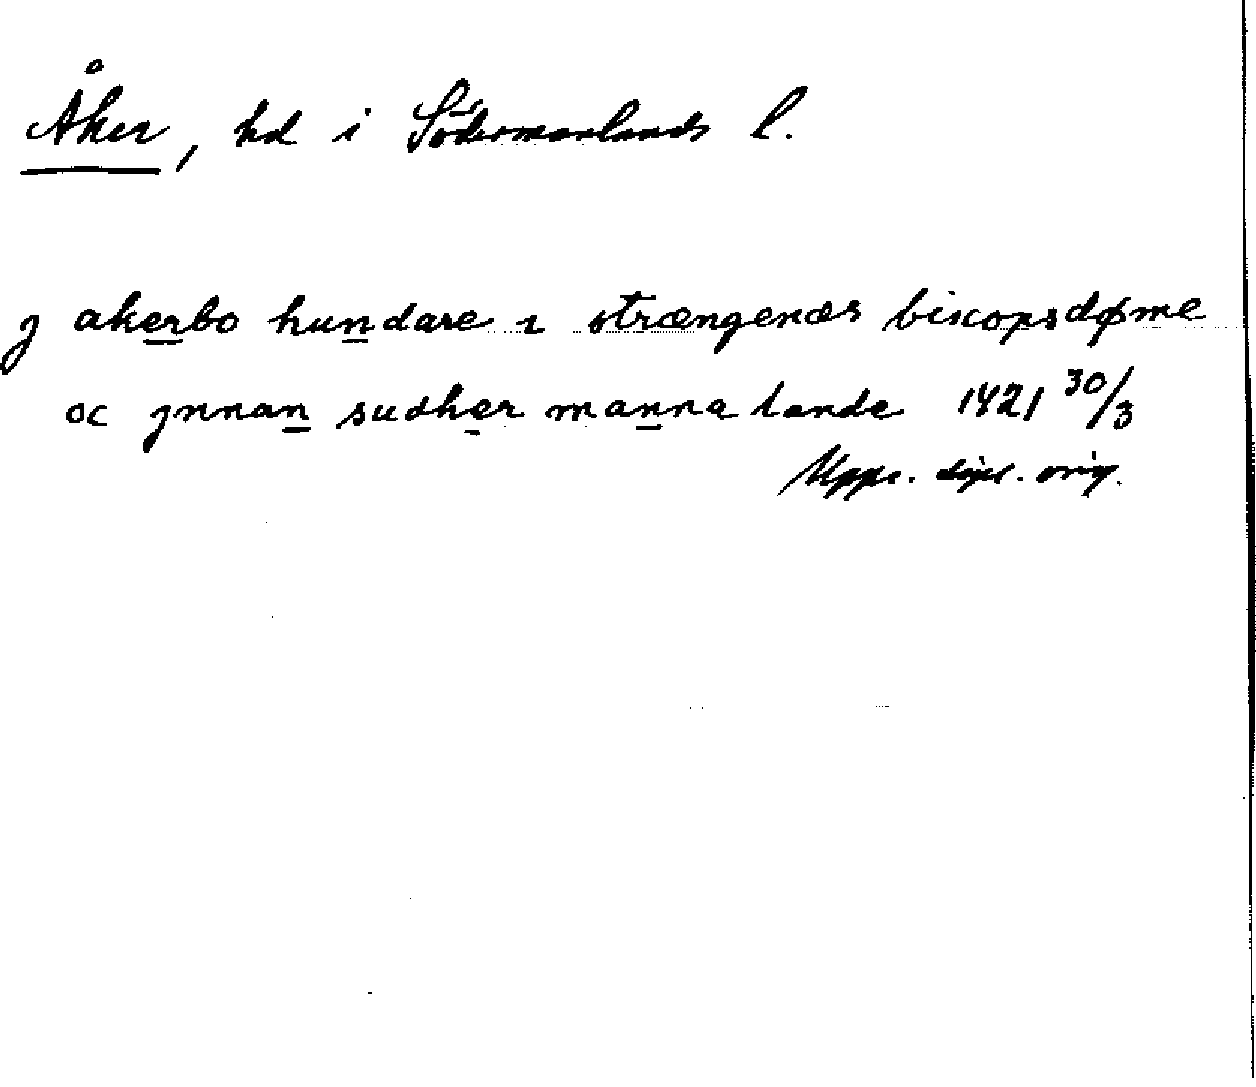 Åker, hd i Södermanlands l.
j akerbo hundare i strængenæs biscopsdøme
oc jnnan sudher manna lande 1421 30/3
Upps. dipl. orig.